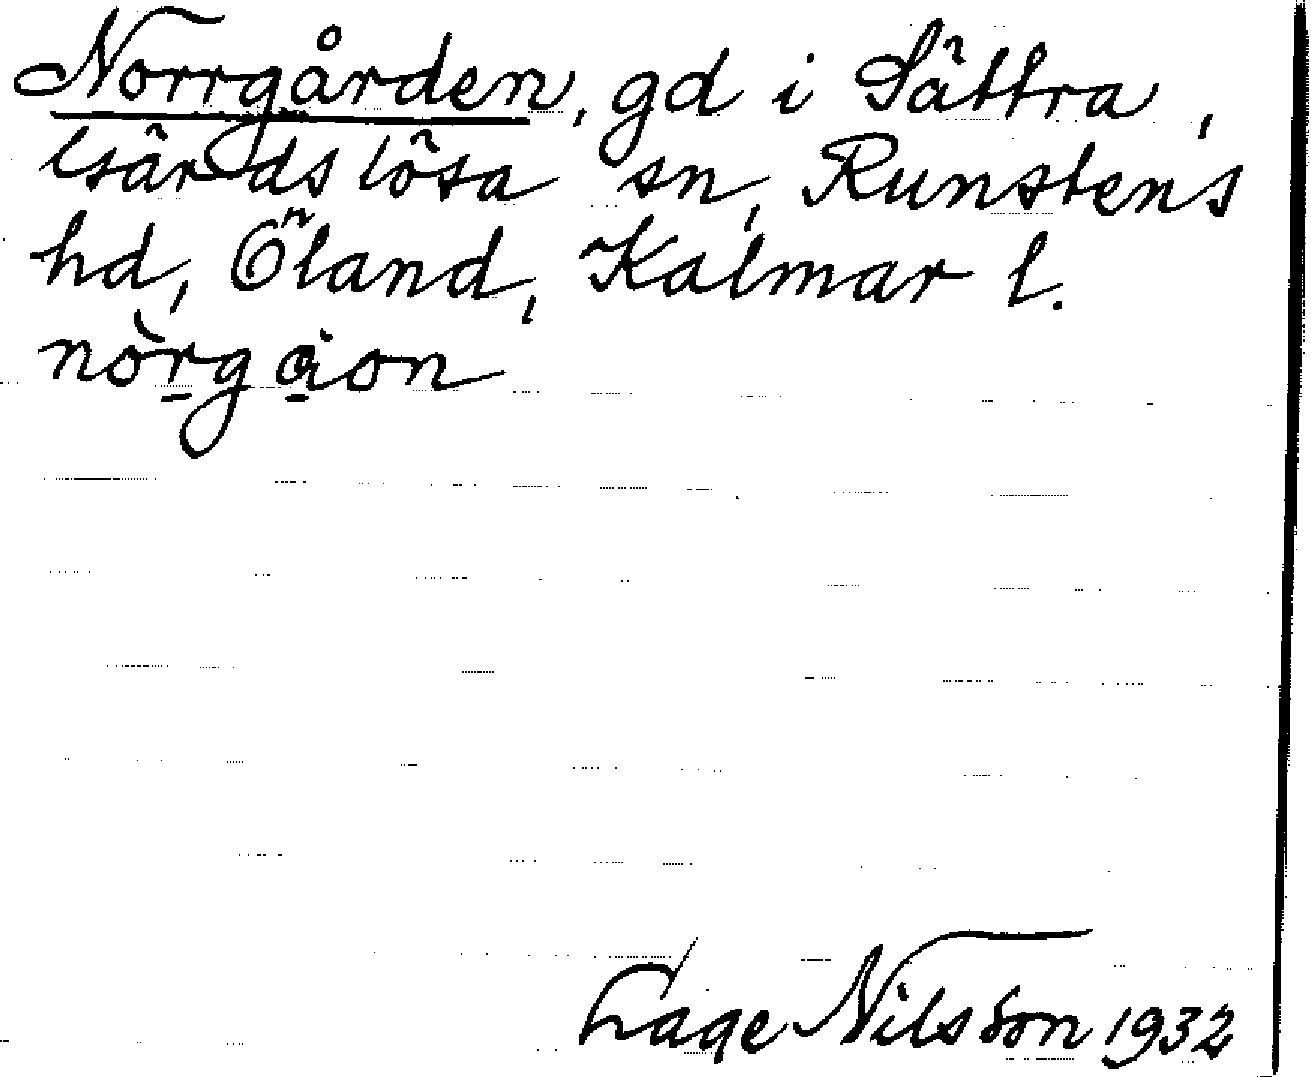 Norrgården, gd i Sättra,
Gärdslösa sn, Runstens
hd, Öland, Kalmar l.
nòrgɑ̀ion
Lage Nilsson 1932